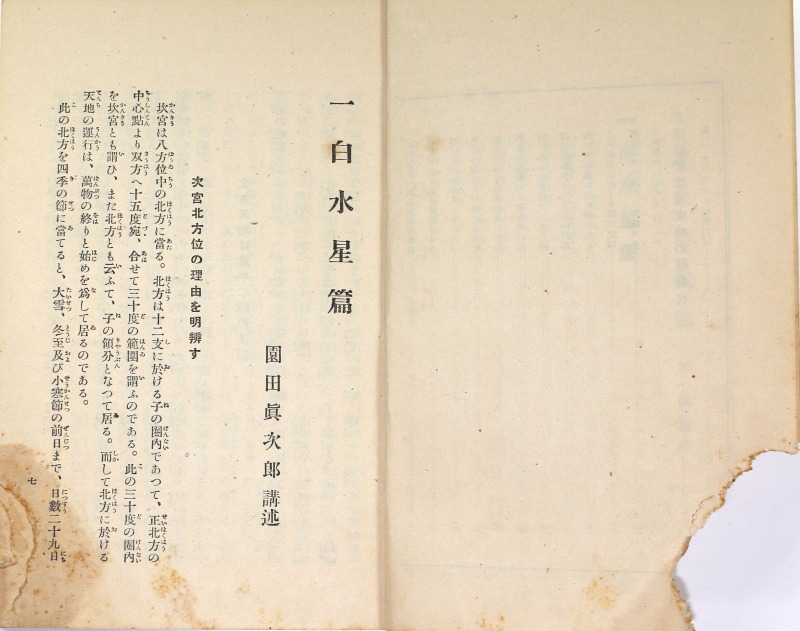 一白水星篇
園田眞次郎講述
次宮北方位の理由を明辨す
坎宮は八方位中の北方に當る。北方は十二支に於ける子の圏内であつて、正北方の
中心點より双方へ十五度宛、合せて三十度の範圍を謂ふのである。此の三十度の圏內
を坎宮とも謂ひ、また北方とも云ふて、子の領分となつて居る。而して北方に於ける
天地の運行は、萬物の終りと始めを爲して居るのである。
此の北方を四季の節に當てると、大雪、冬至及び小寒節の前日まで、日數二十九日
七